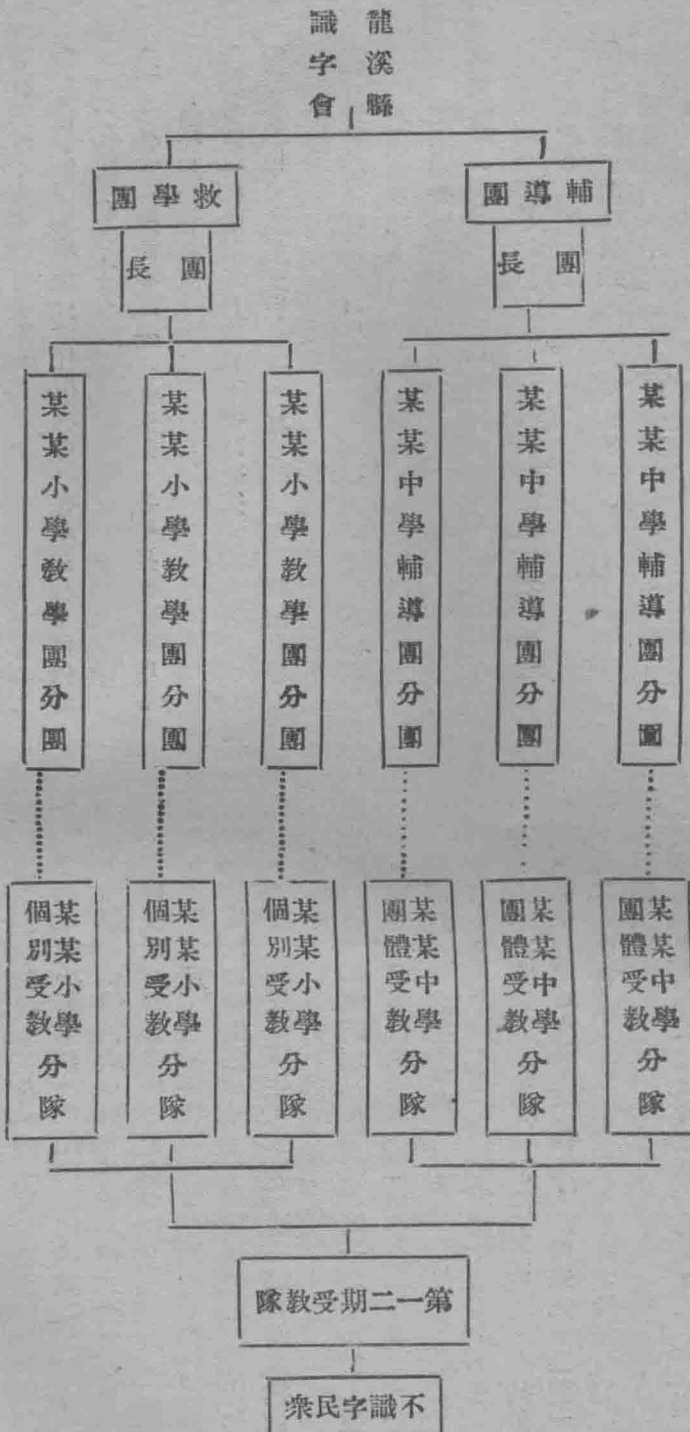 龍溪縣
識字會
輔導團
團長
救學團
團長
某某中學輔導團分團
某某中學輔導團分團
某某中學輔導團分團
某某小學教學團分團
某某小學教學團分團
某某小學教學團分團
某某中學
團體受教
分隊
某某中學
團體受教
分隊
某某中學
團體受教
分隊
某某小學
個別受教
分隊
某某小學
個別受教
分隊
某某小學
個別受教
分隊
第一二期受教隊
不識字民衆